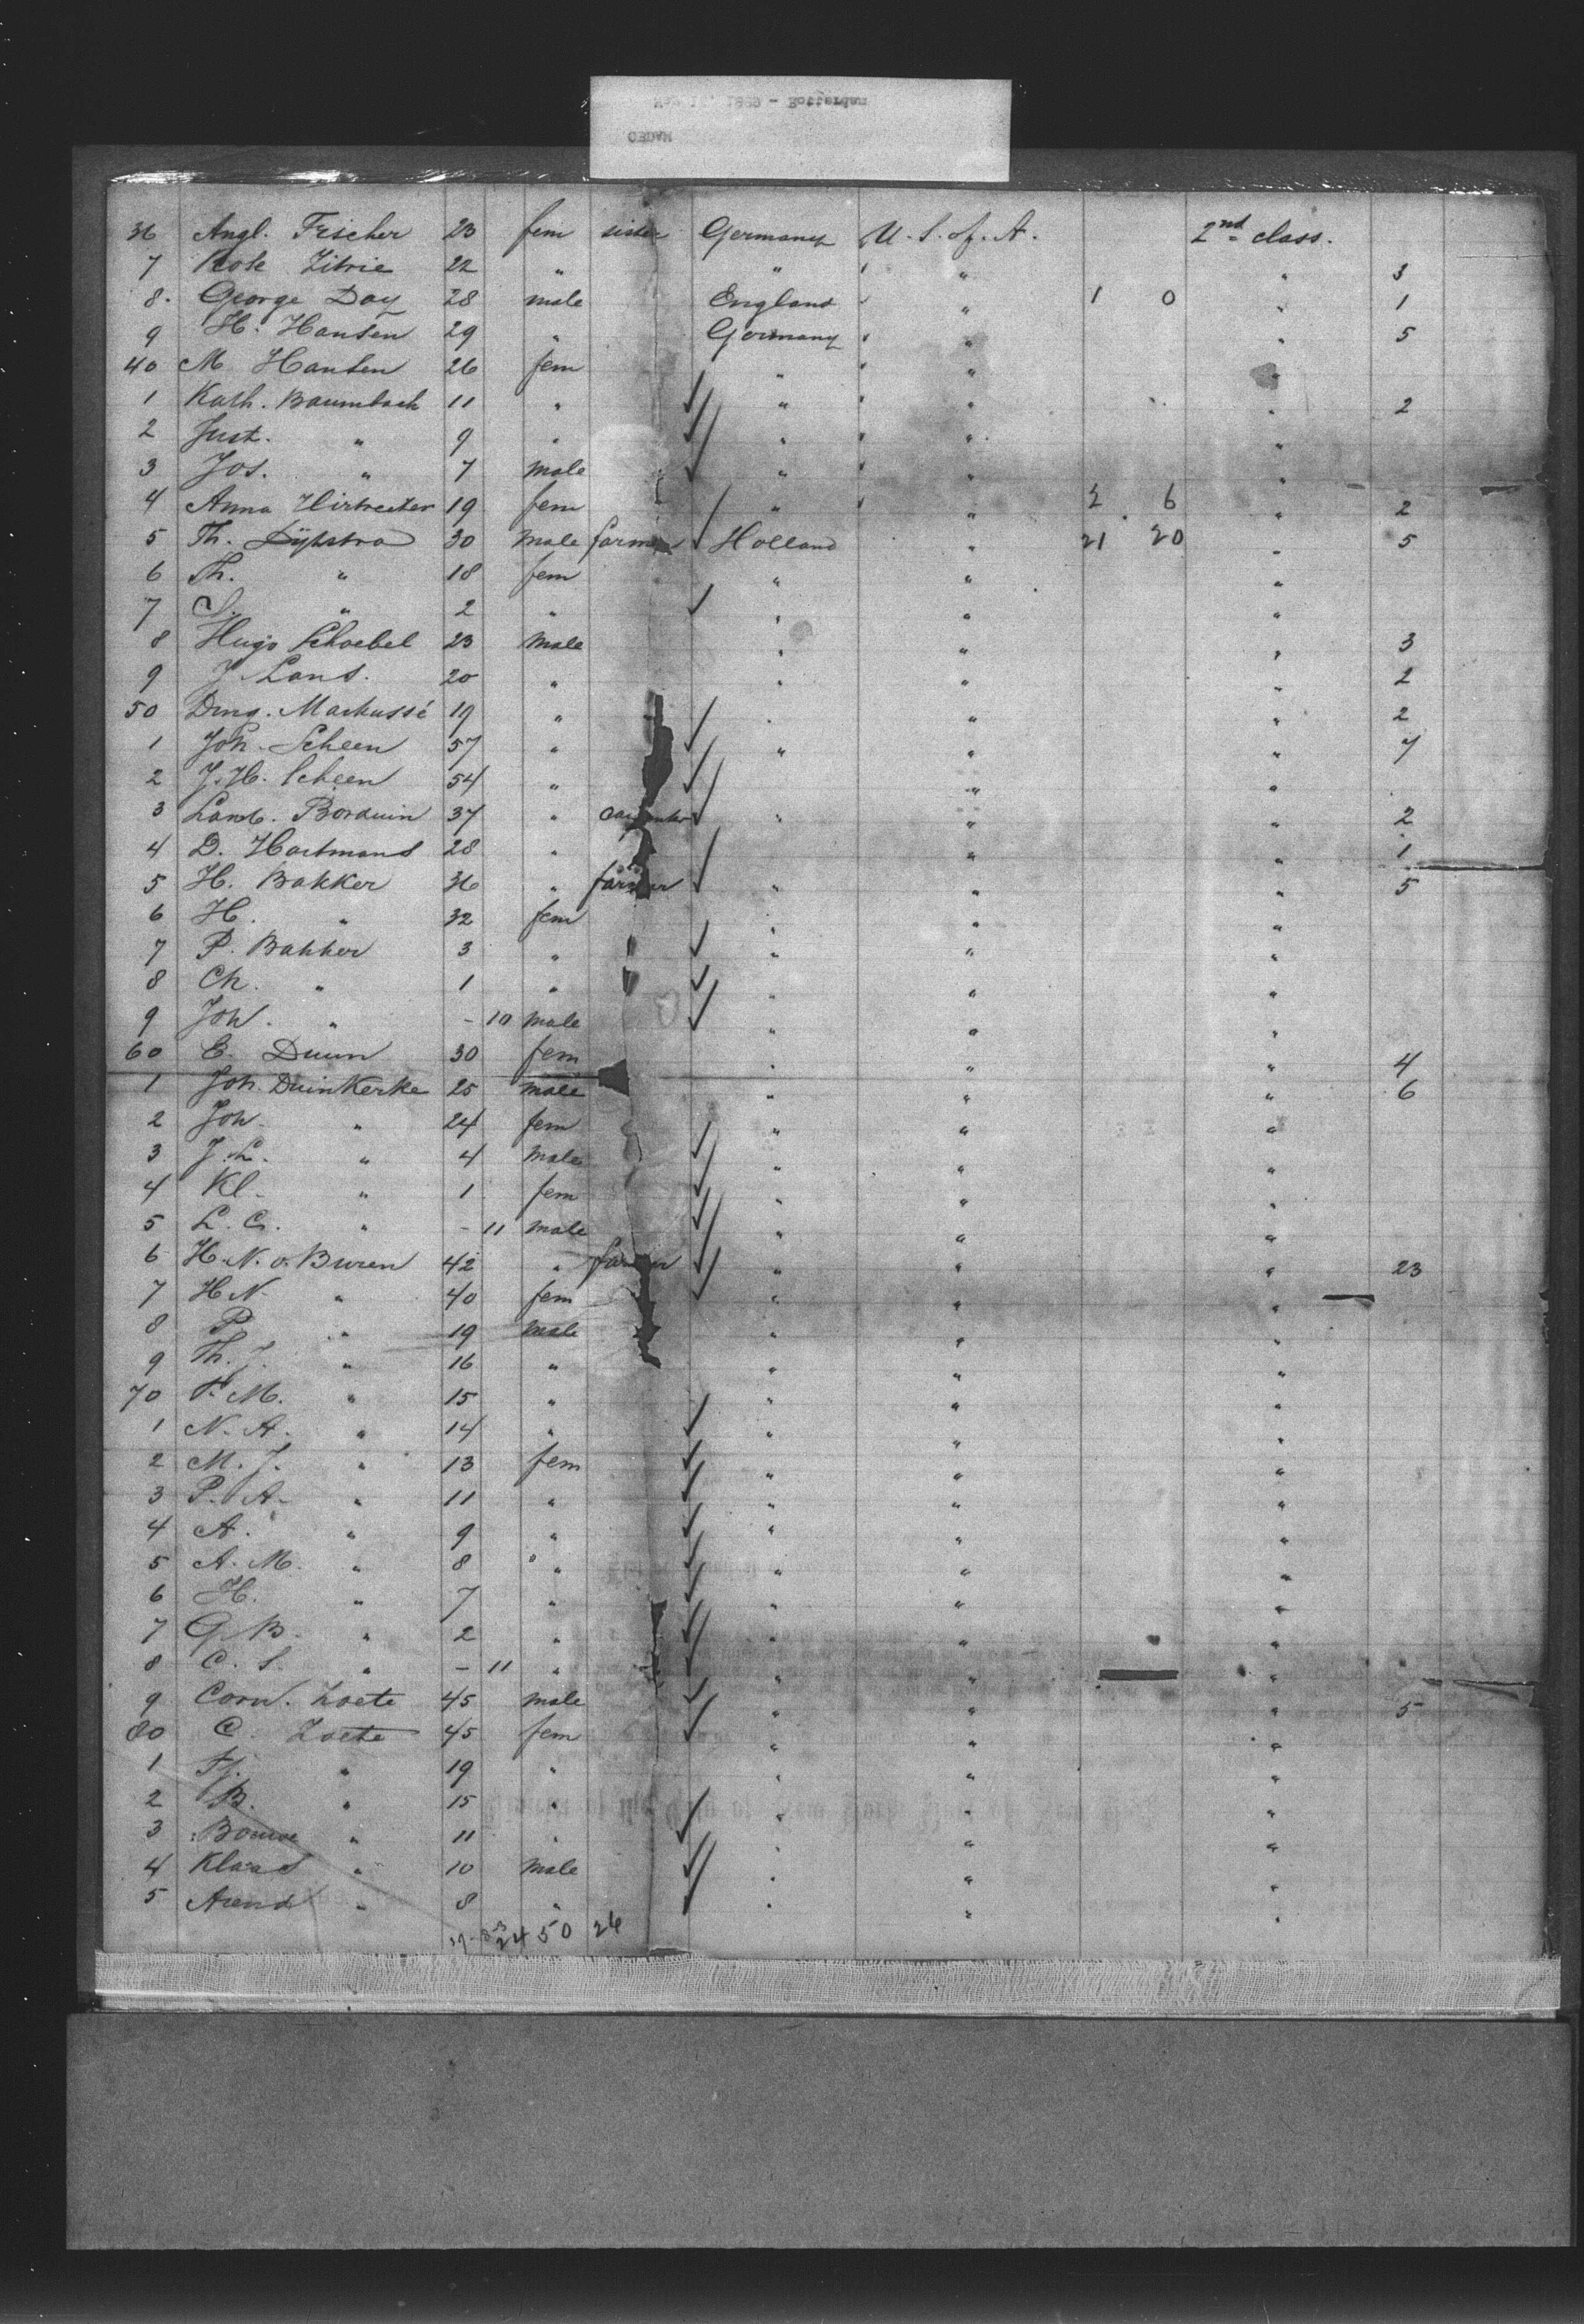 36 Angl. Fischer 23 fem sister Germany U. S. of. A. 2nd class.
7 Zitrie 22 " " " " 3
8. George Day 28 male England " 1 0 " 1
9 H. Hansen 29 " Germany " " 5
40 M. Hansen 26 fem " " "
1 Kath. Baumbach 11 " " " " 2
2 Just. " 9 " " " "
3 Jos. " 7 male " " "
4 Anna 19 fem " " 2 6 " 2
5 Th. Dijkstra 30 male farmer Holland " 21 20 " 5
6 Th. " 18 fem " " "
7 " 2 " " " "
8 Hugo Schoebel 23 male " " " 3
9 J. Lans. 20 " " " " 2
50 Ding. Markussé 19 " " " " 2
1 Joh. Scheen 57 " " " " 7
2 J. H. Scheen 54 " " "
3 Lamb. Borduin 37 " carpenter " " " 2
4 D. Hartmans 28 " " " 1
5 H. Bakker 36 " farmer " " " 5
6 H. " 32 fem " " "
7 P. Bakker 3 " " " "
8 Ch. " 1 " " " "
9 Joh. " - 10 male " " "
60 E. Duun 30 fem " " " 4
1 Joh. Duinkerke 25 male " " " 6
2 Joh. " 24 fem " " "
3 J. L. " 4 male " " "
4 Kl. " 1 fem " " "
5 L. C. " - 11 male " " "
6 H. N. v. Buren 42 " farmer " " " 23
7 H N " 40 fem " " "
8 P. " 19 male " " "
9 Th. J. " 16 " " " "
70 P. M. " 15 " " " "
1 N. A. " 14 " " " "
2 M. J. " 13 fem " " "
3 P. A. " 11 " " " "
4 A. " 9 " " " "
5 A. M. " 8 " " " "
6 H. " 7 " " " "
7 G. B. " 2 " " " "
8 C. S. " - 11 " " " "
9 Corn. Zoete 45 male " " " 5
80 C. Zoete 45 fem " " "
1 Tj. " 19 " " " "
2 B. " 15 " " " "
3 Bouwe " 11 " " " "
4 Klaas " 10 male " " "
5 Arend " 8 " " " "
24 50 26